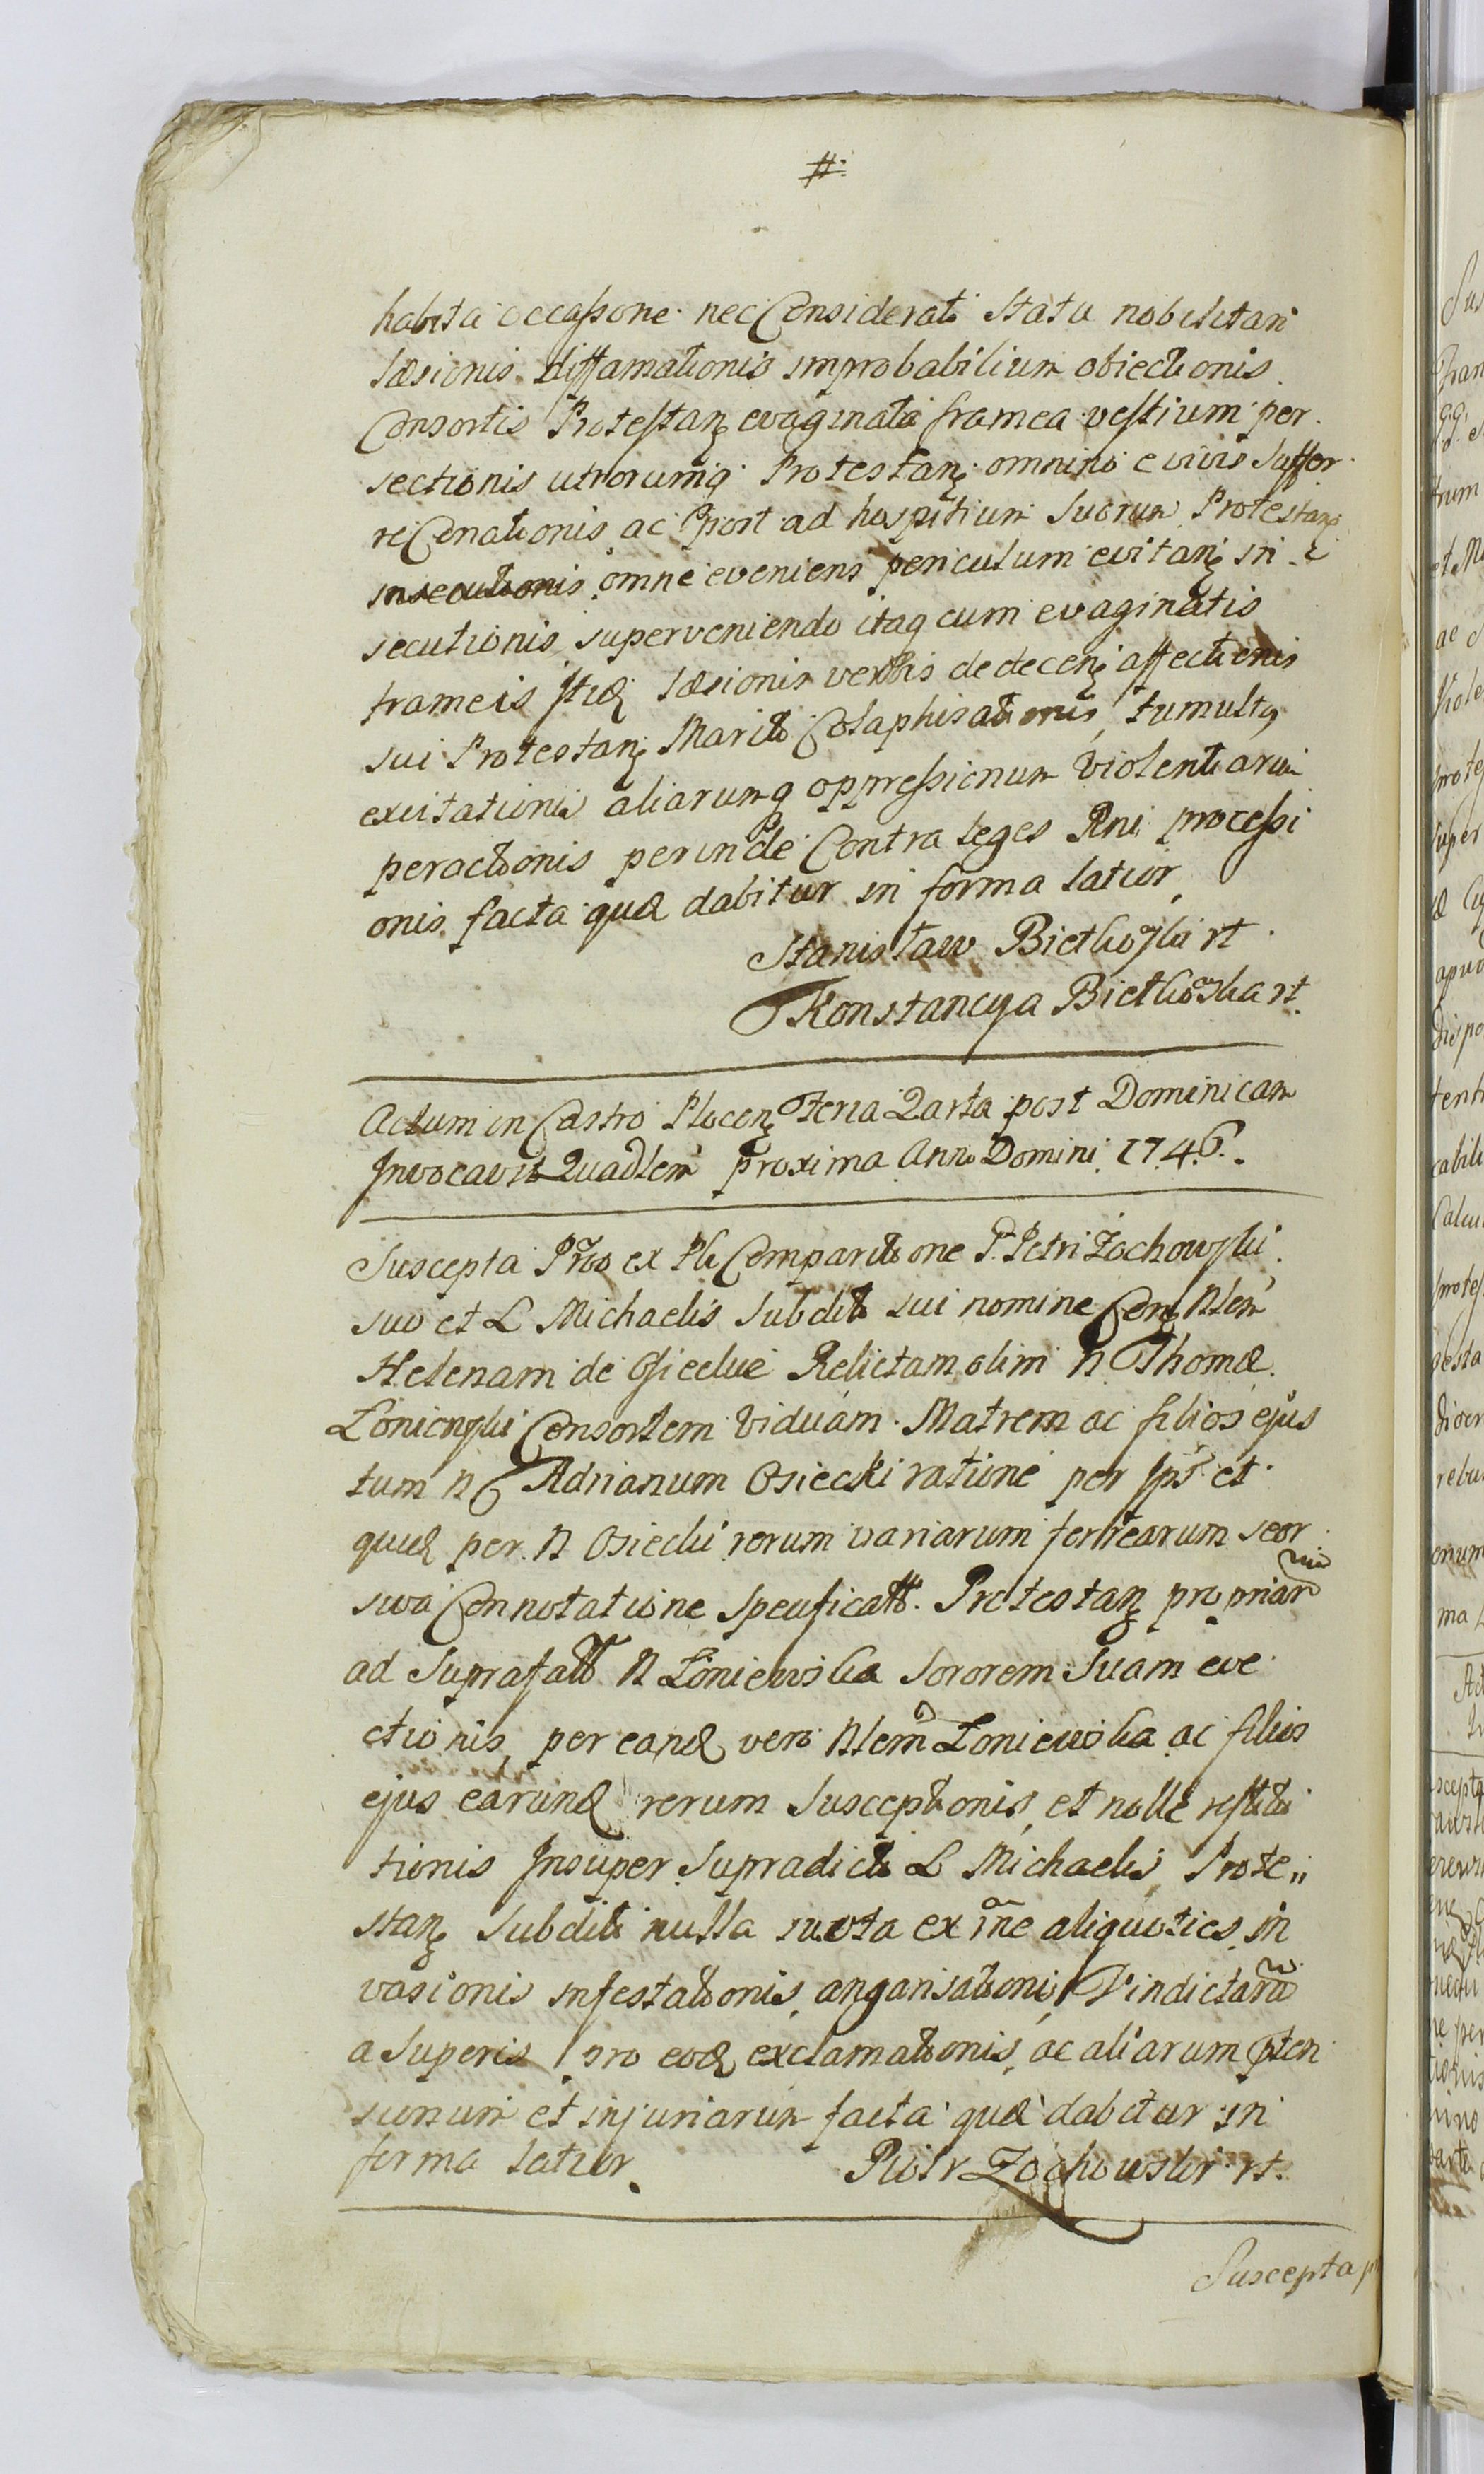 #
habita occassione nec Considerato Statu nobilitari
læsionis diffamationis improbabilium obiectionis
Consortis Protestan evaginata framea vestium per
sectionis utrorumq Protestan omnino e vivis suffer
re Conationis ac post ad hospitium suorum Protestan
insecutionis omne eveniens periculum evitan in
secutionis superveniendo itaq cum evaginatis
frameis læsionis verbis dedecen affectionis
sui Protestan Mariti Colaphisationis tumultq
excitationis aliarumq oppressionum violentiarum
peractionis perinde Contra leges Rni processi
onis facta quæ dabitur in forma latior
Stanisław Bietkowski rt
Konstancya Bietkowska rt.
Actum in Castro Plocen Feria Qarta post Dominicam
Invocavit Quadlem proxima Anno Domini 1746.
Suscepta Prõ ex Pli Comparitione P. Petri Zochowski
suo et L Michaelis Subditi sui nomine Con Nlem
Helenam de Osieckie Relictam olim N Thomæ
Loniewski Consortem Viduam Matrem ac filios ejus
tum N G Adrianum Osiecki ratione per Ips et
quid per N Osiecki rerum variarum ferrearum seor
siva Connotatione specificatt. Protestan propriar
ad Suprafatt N Łoniewska Sororem Suam eve
ctionis, per eand vero Nlem Loniewska ac filios
ejus earund rerum Susceptionis, et nolle restitu
tionis Insuper Supradicti L Michaelis Prote„
stan Subditi nulla mota ex ine aliquoties in
vasionis infestationis angarisationis Vindictam
a Superis pro eod exclamationis, ac aliarum pten
sionum et injuriarum facta quæ dabitur in
forma latior. Piotr Zochowski rt.
Suscepta